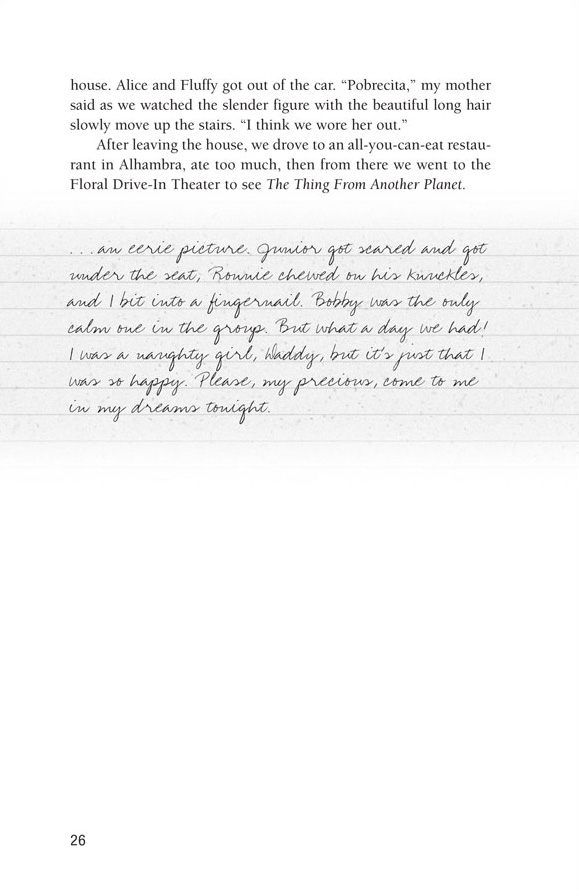 house. Alice and Fluffy got out of the car. “Pobrecita,” my mother
said as we watched the slender figure with the beautiful long hair
slowly move up the stairs. “I think we wore her out.”
After leaving the house, we drove to an all-you-can-eat restau-
rant in Alhambra, ate too much, then from there we went to the
Floral Drive-In Theater to see The Thing From Another Planet.
. . . an eerie picture. Junior got scared and got
under the seat, Ronnie chewed on his knuckles,
and I bit into a fingernail. Bobby was the only
calm one in the group. But what a day we had!
I was a naughty girl, Waddy, but it’s just that I
was so happy. Please, my precious, come to me
in my dreams tonight.
26